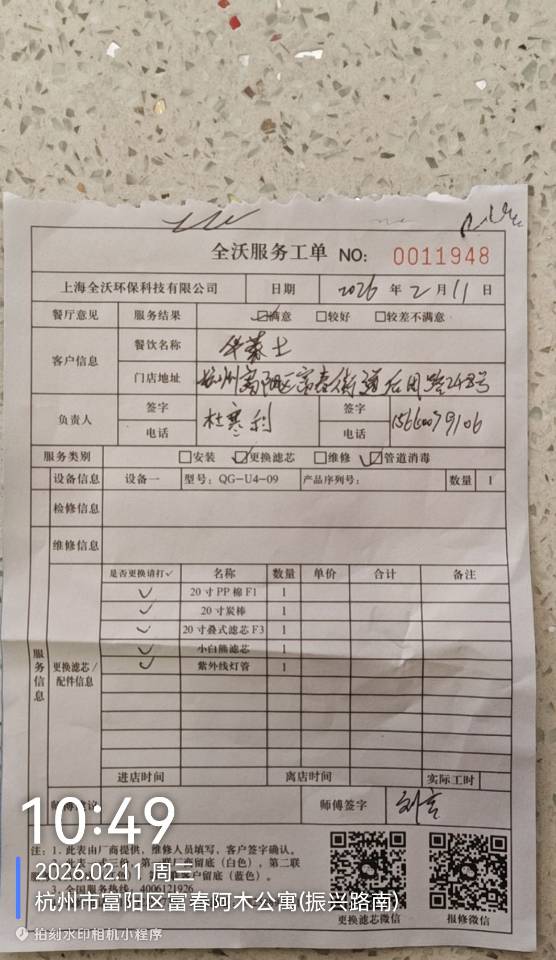 全沃服务工单 NO: 0011948
上海全沃环保科技有限公司 日期 2026 年 2 月 11 日
餐厅意见 服务结果 ☑满意 □较好 □较差不满意
客户信息 餐饮名称 华莱士
门店地址 杭州富阳区富春街道后周路248号
负责人 签字 杜寒利 签字
电话 电话
服务类别 □安装 ☑更换滤芯 □维修 ☑管道消毒
设备信息 设备一 型号: QG-U4-09 产品序列号: 数量 1
检修信息
维修信息
服务信息
更换滤芯/配件信息
是否更换请打✓ 名称 数量 单价 合计 备注
✓ 20寸PP棉F1 1
✓ 20寸炭棒 1
✓ 20寸叠式滤芯F3 1
✓ 小白熊滤芯 1
✓ 紫外线灯管 1
进店时间 离店时间 实际工时
师傅签字
注: 1. 此表由厂商提供, 维修人员填写, 客户签字确认。
(白色)。第二联
留底(蓝色)。
全国服务热线: 4006121926
更换滤芯微信 报修微信
10:49
2026.02.11 周三
杭州市富阳区富春阿木公寓(振兴路南)
拍刻水印相机小程序